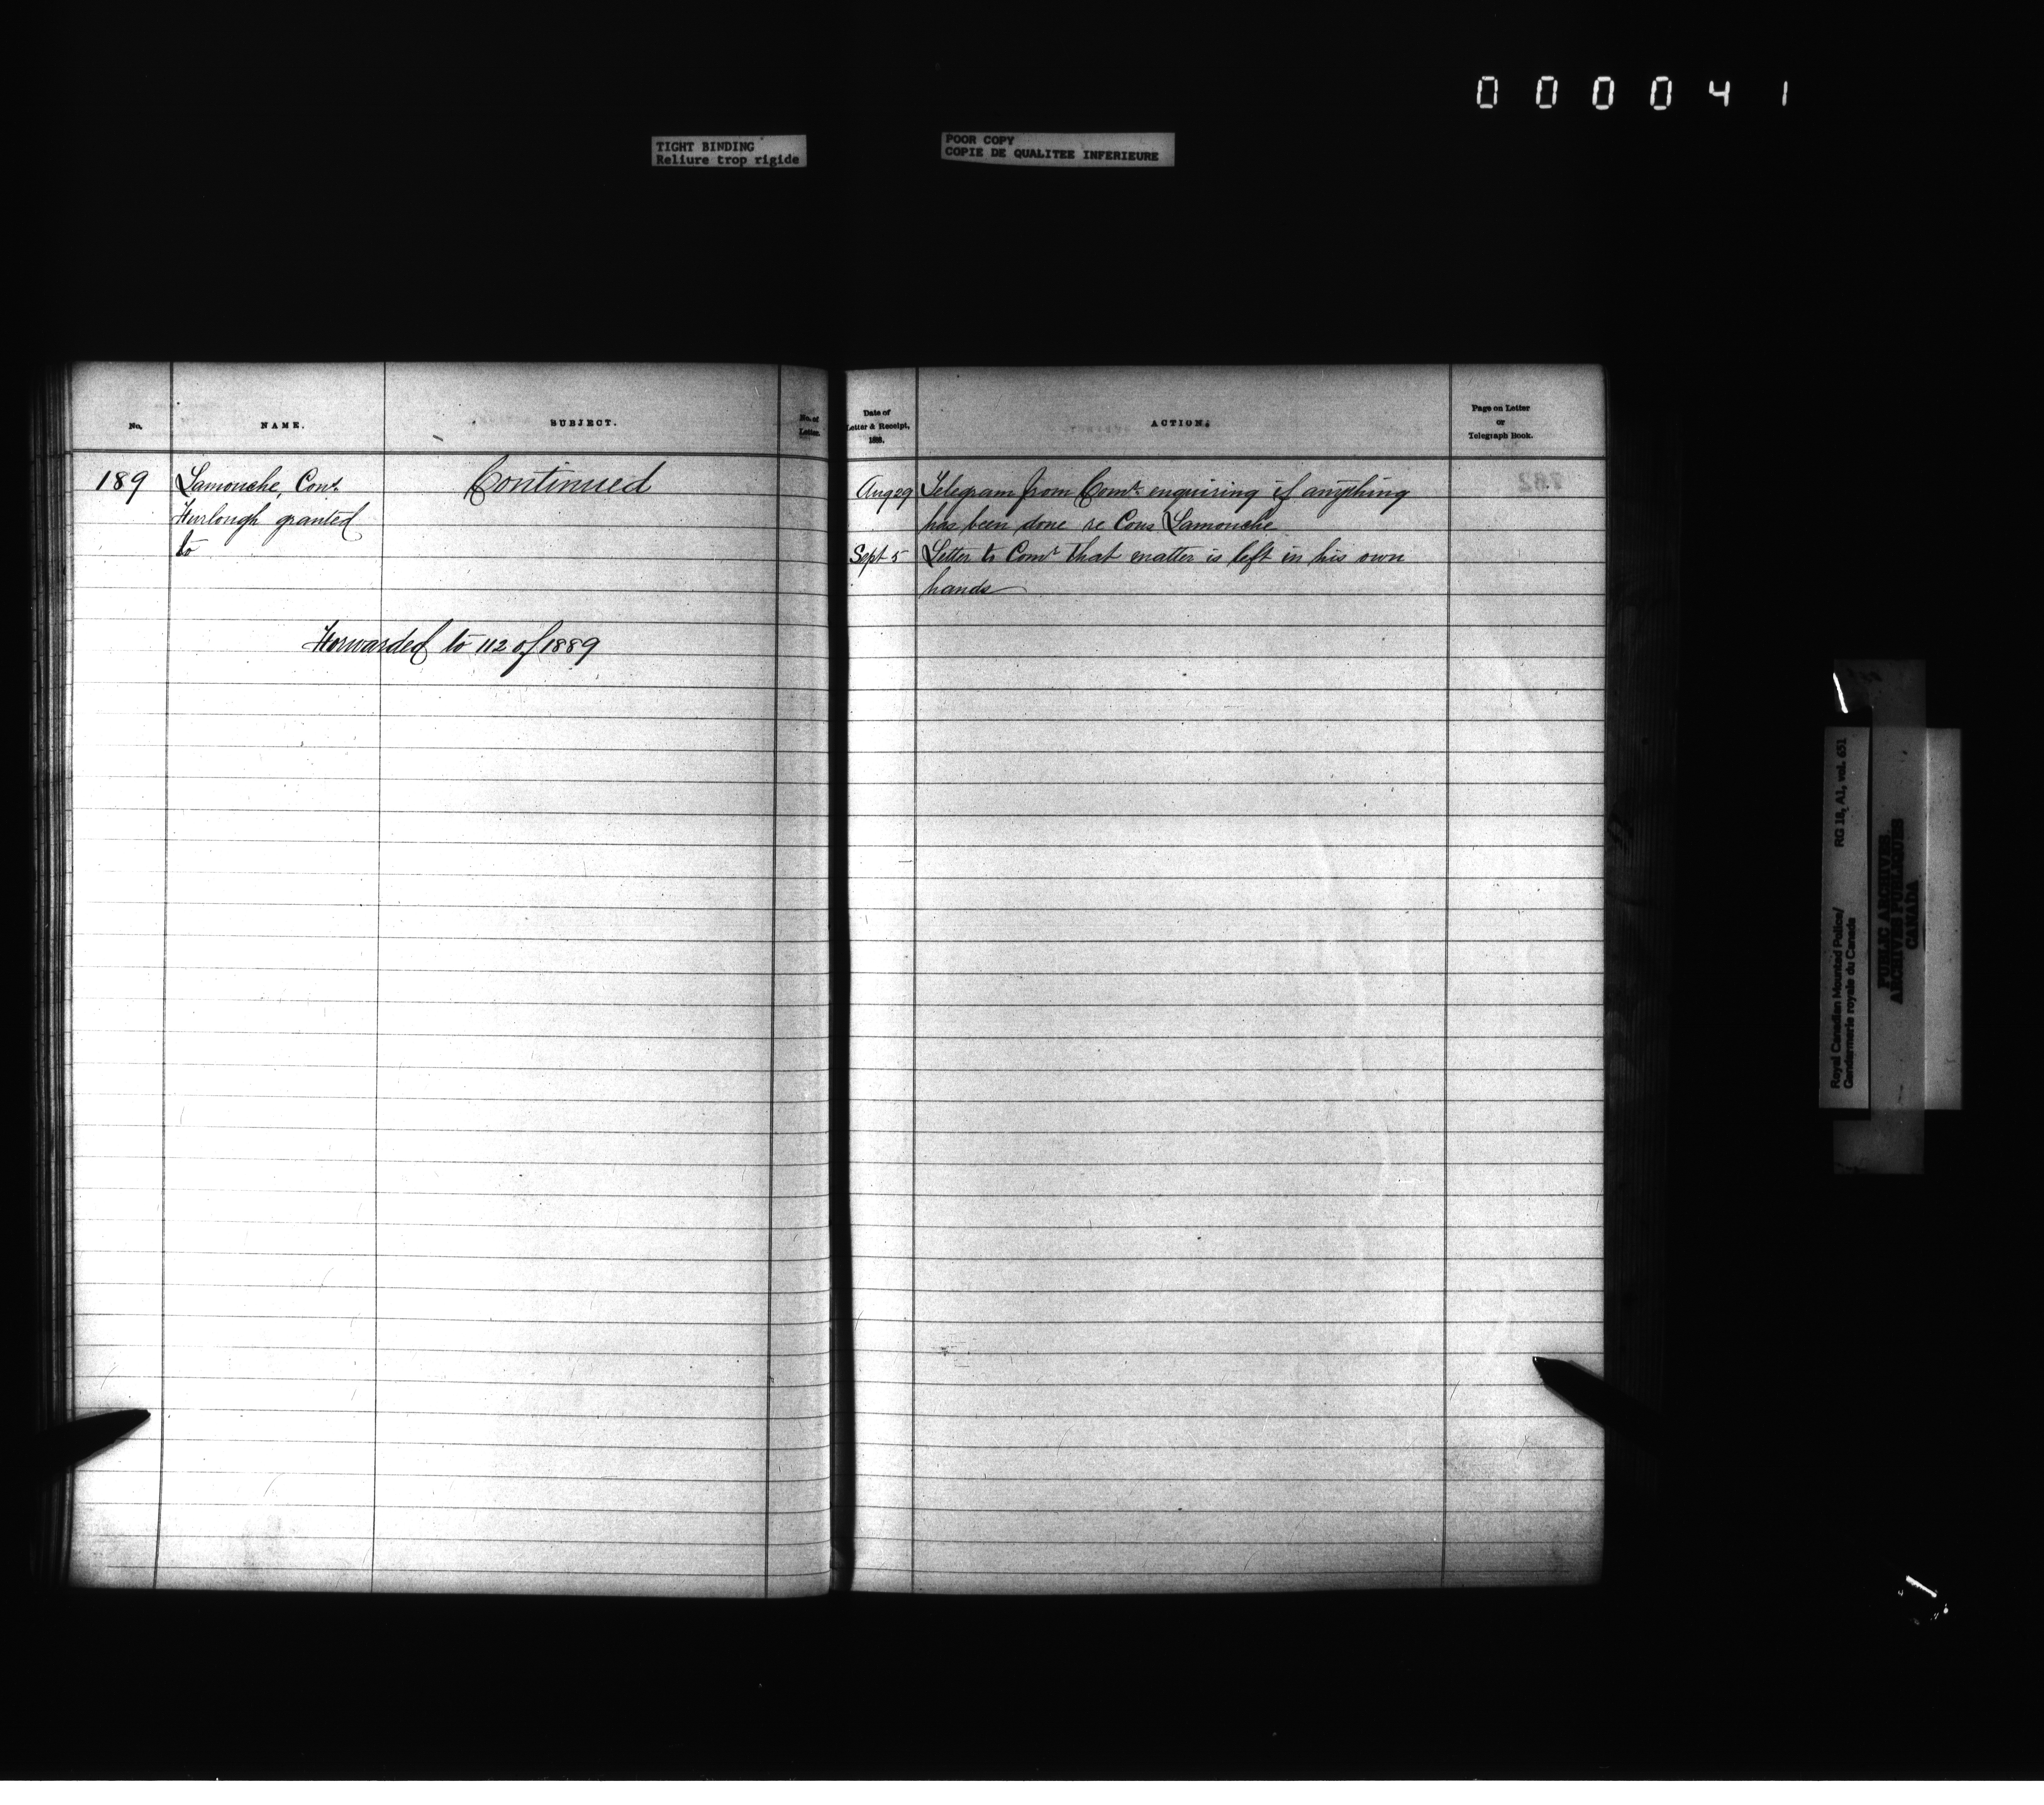 000041
TIGHT BINDING
Reliure trop rigide
POOR COPY
COPIE DE QUALITEE INFERIEURE
No.
NAME.
SUBJECT.
No. of
Letter.
189
Lamouche, Cons.
Furlough granted
to
Continued
Forwarded to 112 of 1889
Date of
Letter & Receipt,
188.
ACTION.
Page on Letter
or
Telegraph Book.
Aug 29 Telegram from Comr. enquiring if anything
has been done re Cons Lamouche
Sept 5 Letter to Comr that matter is left in his own
hands
Royal Canadian Mounted Police/ RG 18, A1, vol. 651
Gendarmerie royale du Canada
PUBLIC ARCHIVES
ARCHIVES PUBLIQUES
CANADA